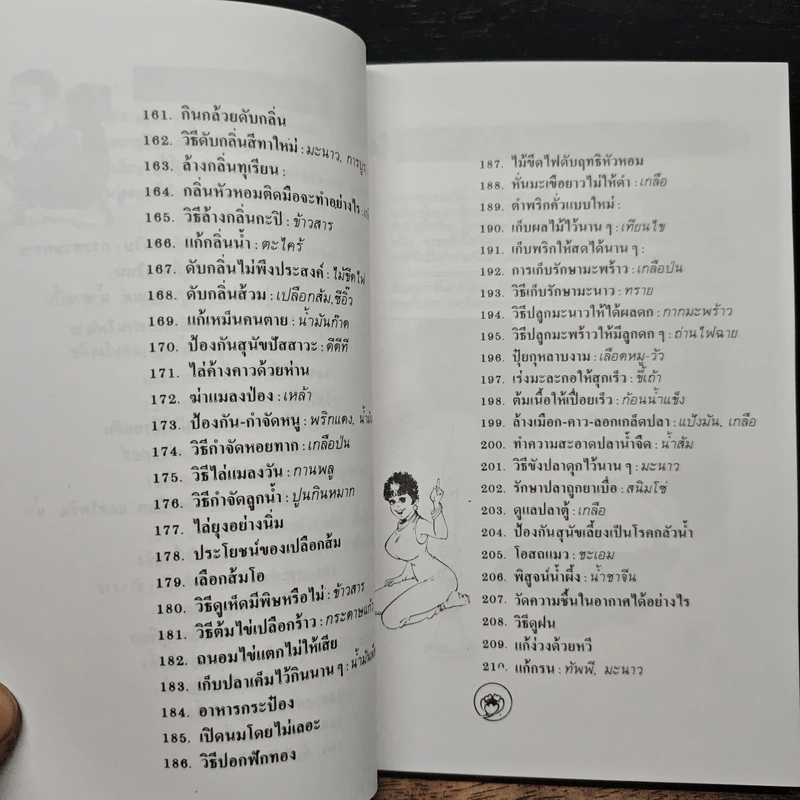 161. กินกล้วยดับกลิ่น
162. วิธีดับกลิ่นสีทาใหม่ : มะนาว, การบูร
163. ล้างกลิ่นทุเรียน :
164. กลิ่นหัวหอมติดมือจะทำอย่างไร :
165. วิธีล้างกลิ่นกะปิ : ข้าวสาร
166. แก้กลิ่นน้ำ : ตะไคร้
167. ดับกลิ่นไม่พึงประสงค์ : ไม้ขีดไฟ
168. ดับกลิ่นส้วม : เปลือกส้ม,ซีอิ๊ว
169. แก้เหม็นคนตาย : น้ำมันก๊าด
170. ป้องกันสุนัขปัสสาวะ : ดีดีที
171. ไล่ค้างคาวด้วยห่าน
172. ฆ่าแมลงป่อง : เหล้า
173. ป้องกัน-กำจัดหนู : พริกแดง,
174. วิธีกำจัดหอยทาก : เกลือป่น
175. วิธีไล่แมลงวัน : กานพลู
176. วิธีกำจัดลูกน้ำ : ปูนกินหมาก
177. ไล่ยุงอย่างนิ่ม
178. ประโยชน์ของเปลือกส้ม
179. เลือกส้มโอ
180. วิธีดูเห็ดมีพิษหรือไม่ : ข้าวสาร
181. วิธีต้มไข่เปลือกร้าว : กระดาษแก้ว
182. ถนอมไข่แตกไม่ให้เสีย
183. เก็บปลาเค็มไว้กินนาน ๆ :
184. อาหารกระป๋อง
185. เปิดนมโดยไม่เลอะ
186. วิธีปอกฟักทอง
187. ไม้ขีดไฟดับฤทธิหัวหอม
188. หั่นมะเขือยาวไม่ให้ดำ : เกลือ
189. ตำพริกคั่วแบบใหม่ :
190. เก็บผลไม้ไว้นาน ๆ : เทียนไข
191. เก็บพริกให้สดได้นาน ๆ :
192. การเก็บรักษามะพร้าว : เกลือป่น
193. วิธีเก็บรักษามะนาว : ทราย
194. วิธีปลูกมะนาวให้ได้ผลดก : กากมะพร้าว
195. วิธีปลูกมะพร้าวให้มีลูกดก ๆ : ถ่านไฟฉาย
196. ปุ๋ยกุหลาบงาม : เลือดหมู-วัว
197. เร่งมะละกอให้สุกเร็ว : ขี้เถ้า
198. ต้มเนื้อให้เปื่อยเร็ว : ก้อนน้ำแข็ง
199. ล้างเมือก-คาว-ลอกเกล็ดปลา : แป้งมัน, เกลือ
200. ทำความสะอาดปลาน้ำจืด : น้ำส้ม
201. วิธีขังปลาดุกไว้นาน ๆ : มะนาว
202. รักษาปลาถูกยาเบื่อ : สนิมโซ่
203. ดูแลปลาตู้ : เกลือ
204. ป้องกันสุนัขเลี้ยงเป็นโรคกลัวน้ำ
205. โอสถแมว : ชะเอม
206. พิสูจน์น้ำผึ้ง : น้ำชาจีน
207. วัดความชื้นในอากาศได้อย่างไร
208. วิธีดูฝน
209. แก้ง่วงด้วยหวี
210. แก้กรน : ทัพพี, มะนาว